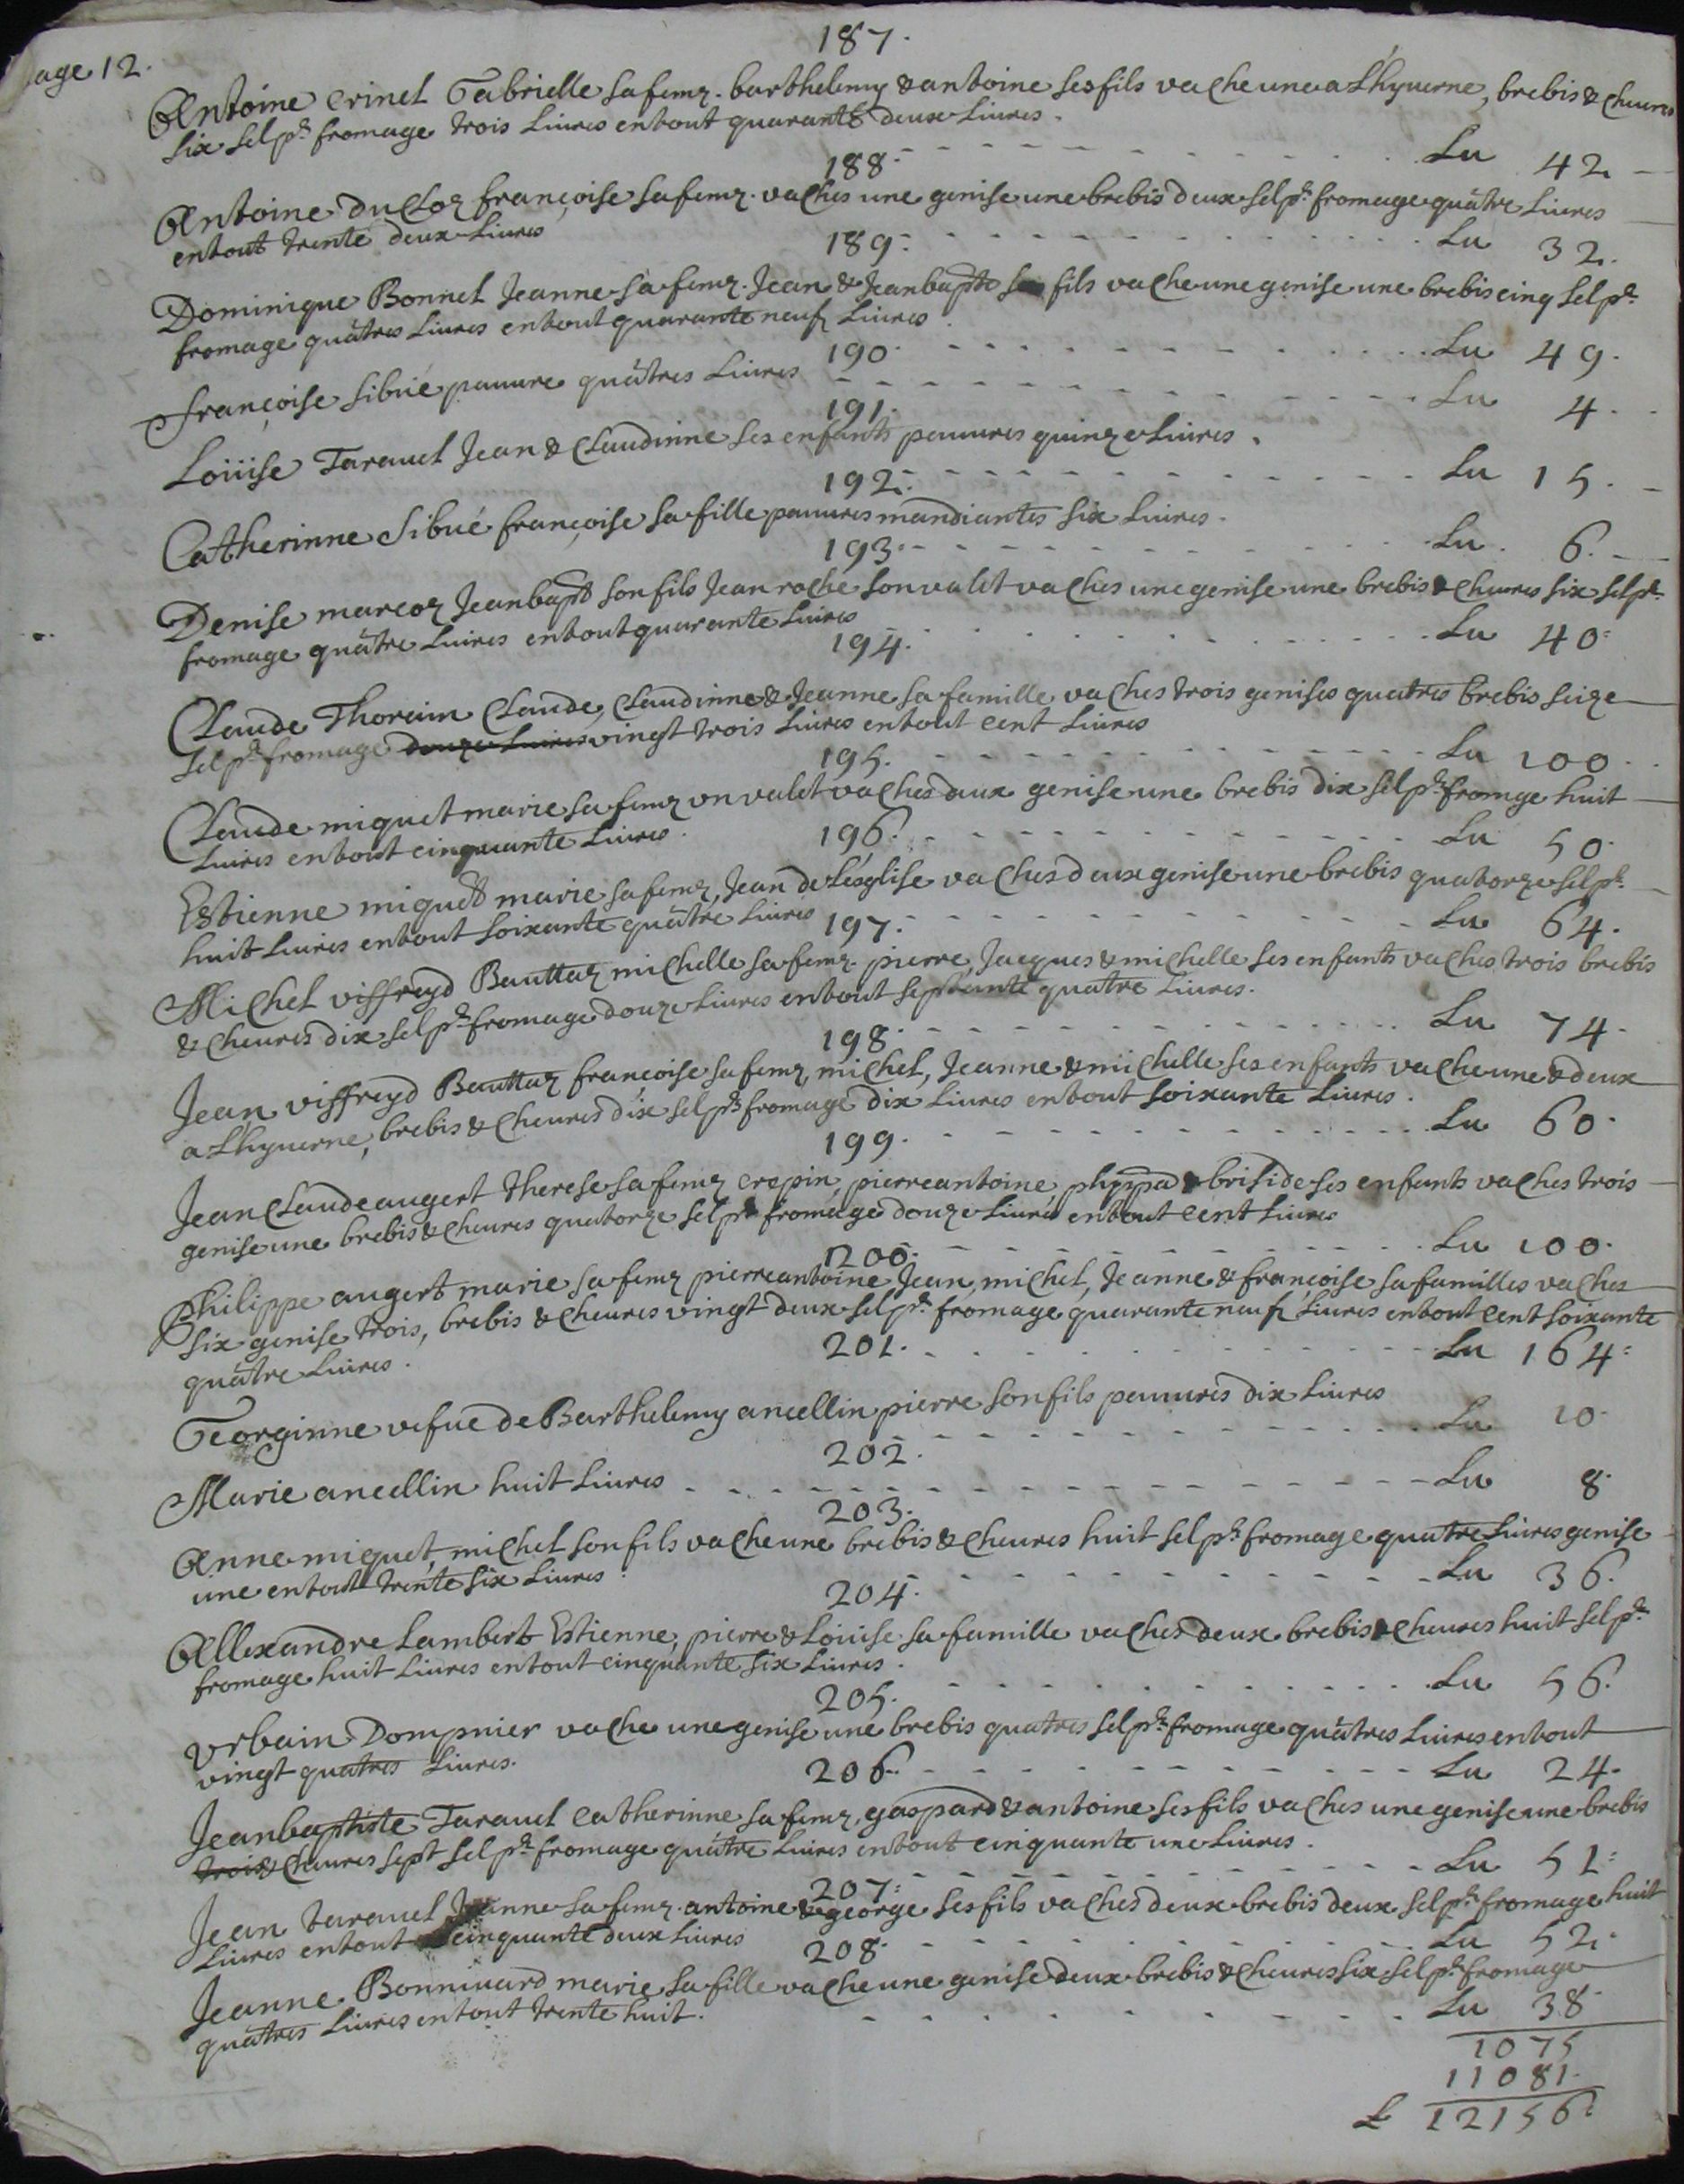 age 12.
187.
Antoine crinel Gabrielle sa femz. barthelemy & antoine ses fils vache une a Lhyuerne, brebis & cheures
six selpr. fromage trois Liures entout quarante deux Liures.
Lu 42
188.
Antoine ducloz françoise sa femz. vaches une genise une brebis deux selpr. fromage quâtre Liures
entout trente deux Liures
Lu 32.
189.
Dominique Bonnel Jeanne sa femz. Jean & Jeanbapte ses fils vache une genise une brebis cinq selpr.
fromage quâtres Liures entout quarante neuf Liures.
Lu 49.
190.
françoise sibué pauure quâtres Liures
Lu 4.
191.
Loüise Tarauel Jean & Claudinne ses enfants pauures quinze Liures.
Lu 15.
192.
Catherinne Sibué françoise sa fille pauures mandiantes six Liures.
Lu. 6.
193.
Denise marcoz Jeanbapte son fils Jean roche son valet vaches une genise une brebis & cheures six selpr.
fromage quâtre Liures entout quarante Liures
Lu 40.
194.
Claude Thoraim Claude, Claudinne & Jeanne sa famille vaches trois genises quatres brebis seize
selpr. fromage douze Liures vingt trois Liures entout cent Liures
Lu 100.
195.
Claude miquet marie sa femz un valet vaches deux genise une brebis dix selpr. fromage huit
Liures entout cinquante Liures.
Lu 50.
196.
Estienne miquet marie sa femz, Jean de Lésglise vaches deux genise une brebis quatorze selpr.
huit Liures entout soixante quâtre Liures
Lu 64.
197.
Michel viffreyd Bauttaz michelle sa femz. pierre, Jacques & michelle ses enfants vaches trois brebis
& cheures dix selpr. fromage douze Liures entout septante quatre Liures.
Lu 74.
198.
Jean viffreyd Bauttaz françoise sa femz, michel, Jeanne & michelle ses enfants vache une & deux
a Lhyuerne, brebis & cheures dix selpr. fromage dix Liures entout soixante Liures.
Lu 60.
199.
Jean Claude augert therese sa femz crepin, pierreantoine, & briside ses enfants vaches trois
genise une brebis & cheures quatorze selpr. fromage douze Liures entout cent Liures
Lu 100.
200.
Philippe augert marie sa femz pierreantoine, Jean, michel, Jeanne & françoise sa familles vaches
six genise trois, brebis & cheures vingt deux selpr. fromage quarante neuf Liures entout cent soixante
quâtre Liures.
Lu 164.
201.
Georginne vefue de Barthelemy ancellin pierre son fils pauures dix Liures
Lu 10.
202.
Marie ancellin huit Liures
Lu 8.
203.
Anne miquet, michel son fils vache une brebis & cheures huit selpr. fromage quatre Liures genise
une entout trente six Liures.
Lu 36.
204.
Allexandre Lambert Estienne, pierre & Loüise sa famille vaches deux brebis & cheures huit selpr.
fromage huit Liures entout cinquante six Liures.
Lu 56.
205.
Urbain Dompnier vache une genise une brebis quatres selpr. fromage quâtres Liures entout
vingt quatres Liures.
Lu 24.
206.
Jeanbaptiste Tarauel Catherinne sa femz, gaspard & antoine ses fils vaches une genise une brebis
trois & cheures sept selpr. fromage quâtre Liures entout cinquante une Liures.
Lu 51.
207.
Jean tarauel Jeanne sa femz. antoine & george ses fils vaches deux brebis deux selpr. fromage huit
Liures entout cinquante deux Liures
Lu 52.
208.
Jeanne Bonniuard marie sa fille vache une genise deux brebis & cheures six selpr. fromage
quâtres Liures entout trente huit.
Lu 38.
1075
11081.
£ 12156.